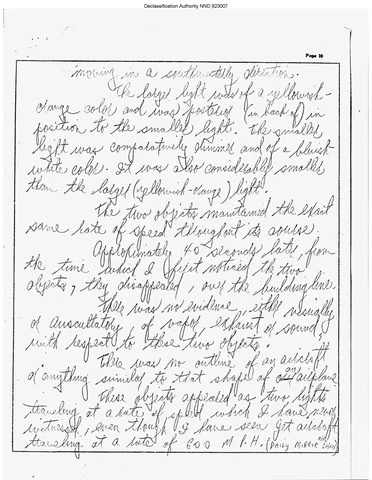 Declassification Authority NND 923007
Page 10
moving in a southwesterly direction.
The large light was of a yellowish-
orange color and was posterior (in back of) in
position to the smaller light. The smaller
light was comparatively dimmer and of a bluish
white color. It was also considerably smaller
than the larger (yellowish-orange) light.
The two objects maintained the exact
same rate of speed throughout its course.
Approximately 40 seconds later, from
the time which I first noticed the two
objects, they disappeared, over the building line.
There was no evidence, either visually
or auscultatory, of vapor, exhaust or sound,
with respect to these two objects.
There was no outline of an aircraft
or anything similar to that shape of an airplane.
These objects appeared as two lights
traveling at a rate of speed which I have never
witnessed, even though I have seen jet aircraft
traveling at a rate of 600 M.P.H. (DAILY MIRROR